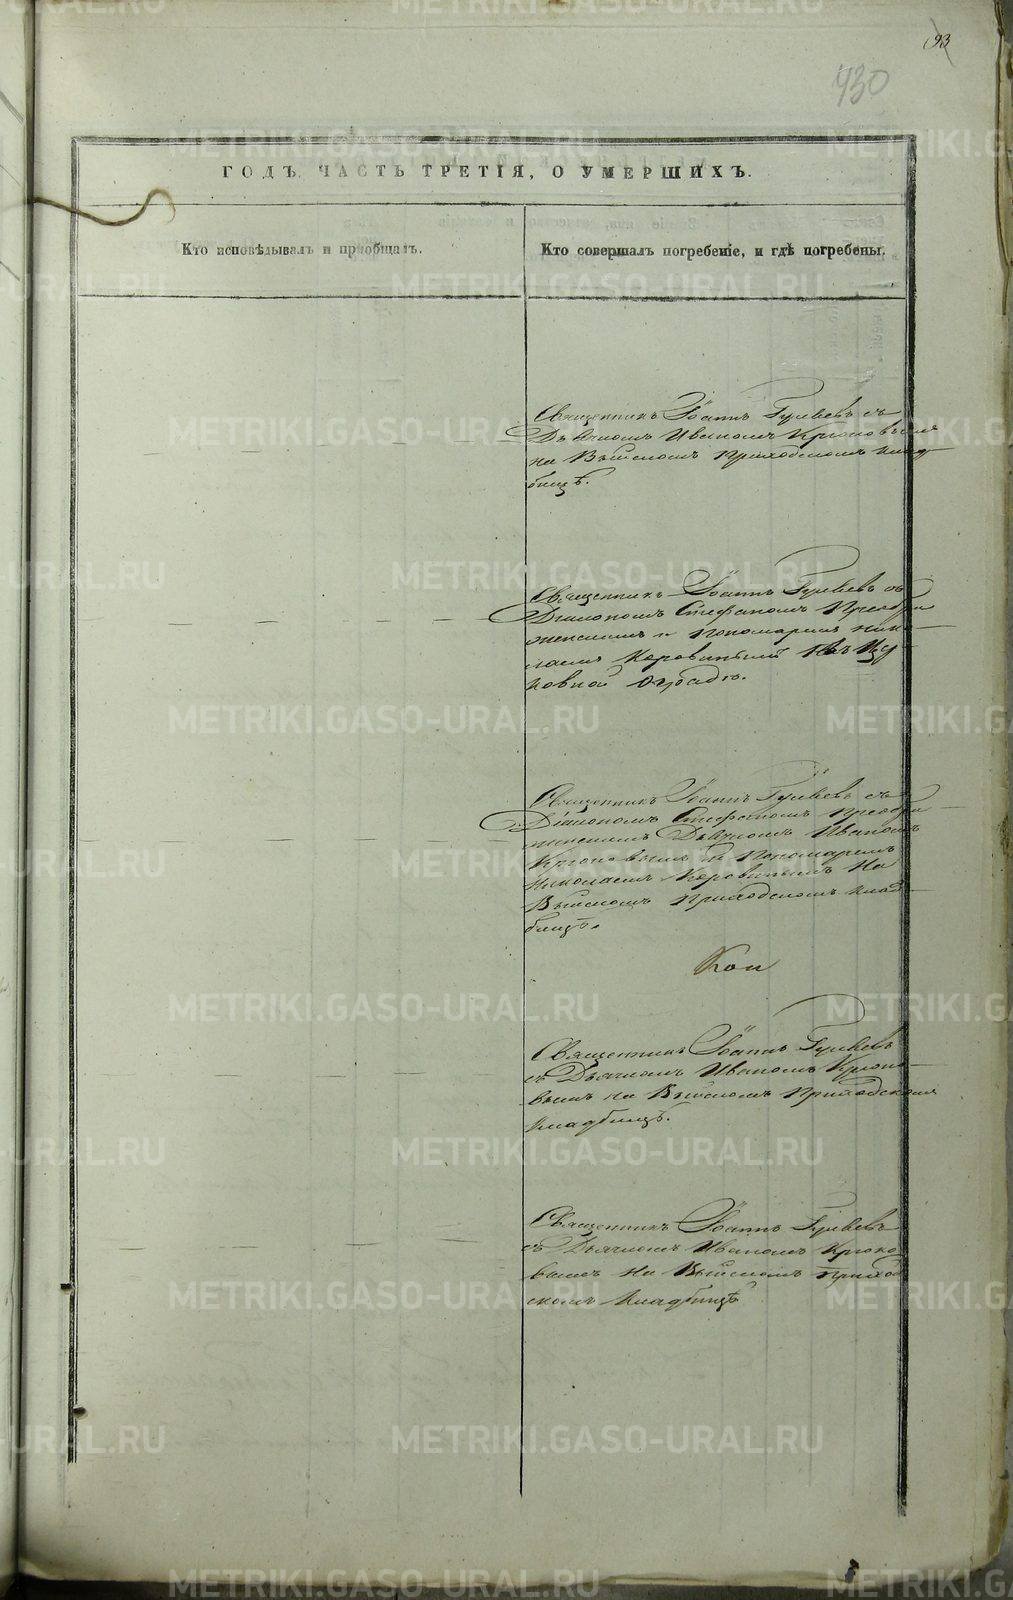 93
430
ГОДЪ ЧАСТЬ ТРЕТІЯ, О УМЕРШИХЪ.
Кто исповѣдывалъ и пріобщалъ.
Кто совершалъ погребеніе, и гдѣ погребены.
Священникъ Іоаннъ Гуляевъ съ
Дьячкомъ Иваномъ Крюковымъ
на Выйскомъ Приходскомъ клад
бищѣ.
Священникъ Іоаннъ Гуляевъ съ
Діакономъ Стефаномъ Преобра
женскимъ и Пономаремъ Нико
лаемъ въ Цер
ковной Оградѣ.
Священникъ Іоаннъ Гуляевъ съ
Діакономъ Стефаномъ Преобра
женскимъ Дьячкомъ Иваномъ
Крюковымъ и Пономаремъ
Николаемъ на
Выйскомъ Приходскомъ клад
бищѣ.
Священникъ Іоаннъ Гуляевъ
съ Дьячкомъ Иваномъ Крюко
вымъ на Выйскомъ Приходскомъ
Кладбищѣ.
Священникъ Іоаннъ Гуляевъ
съ Дьячкомъ Иваномъ Крюко
вымъ на Выйскомъ Приход
скомъ Кладбищѣ
METRIKI.GASO-URAL.RU